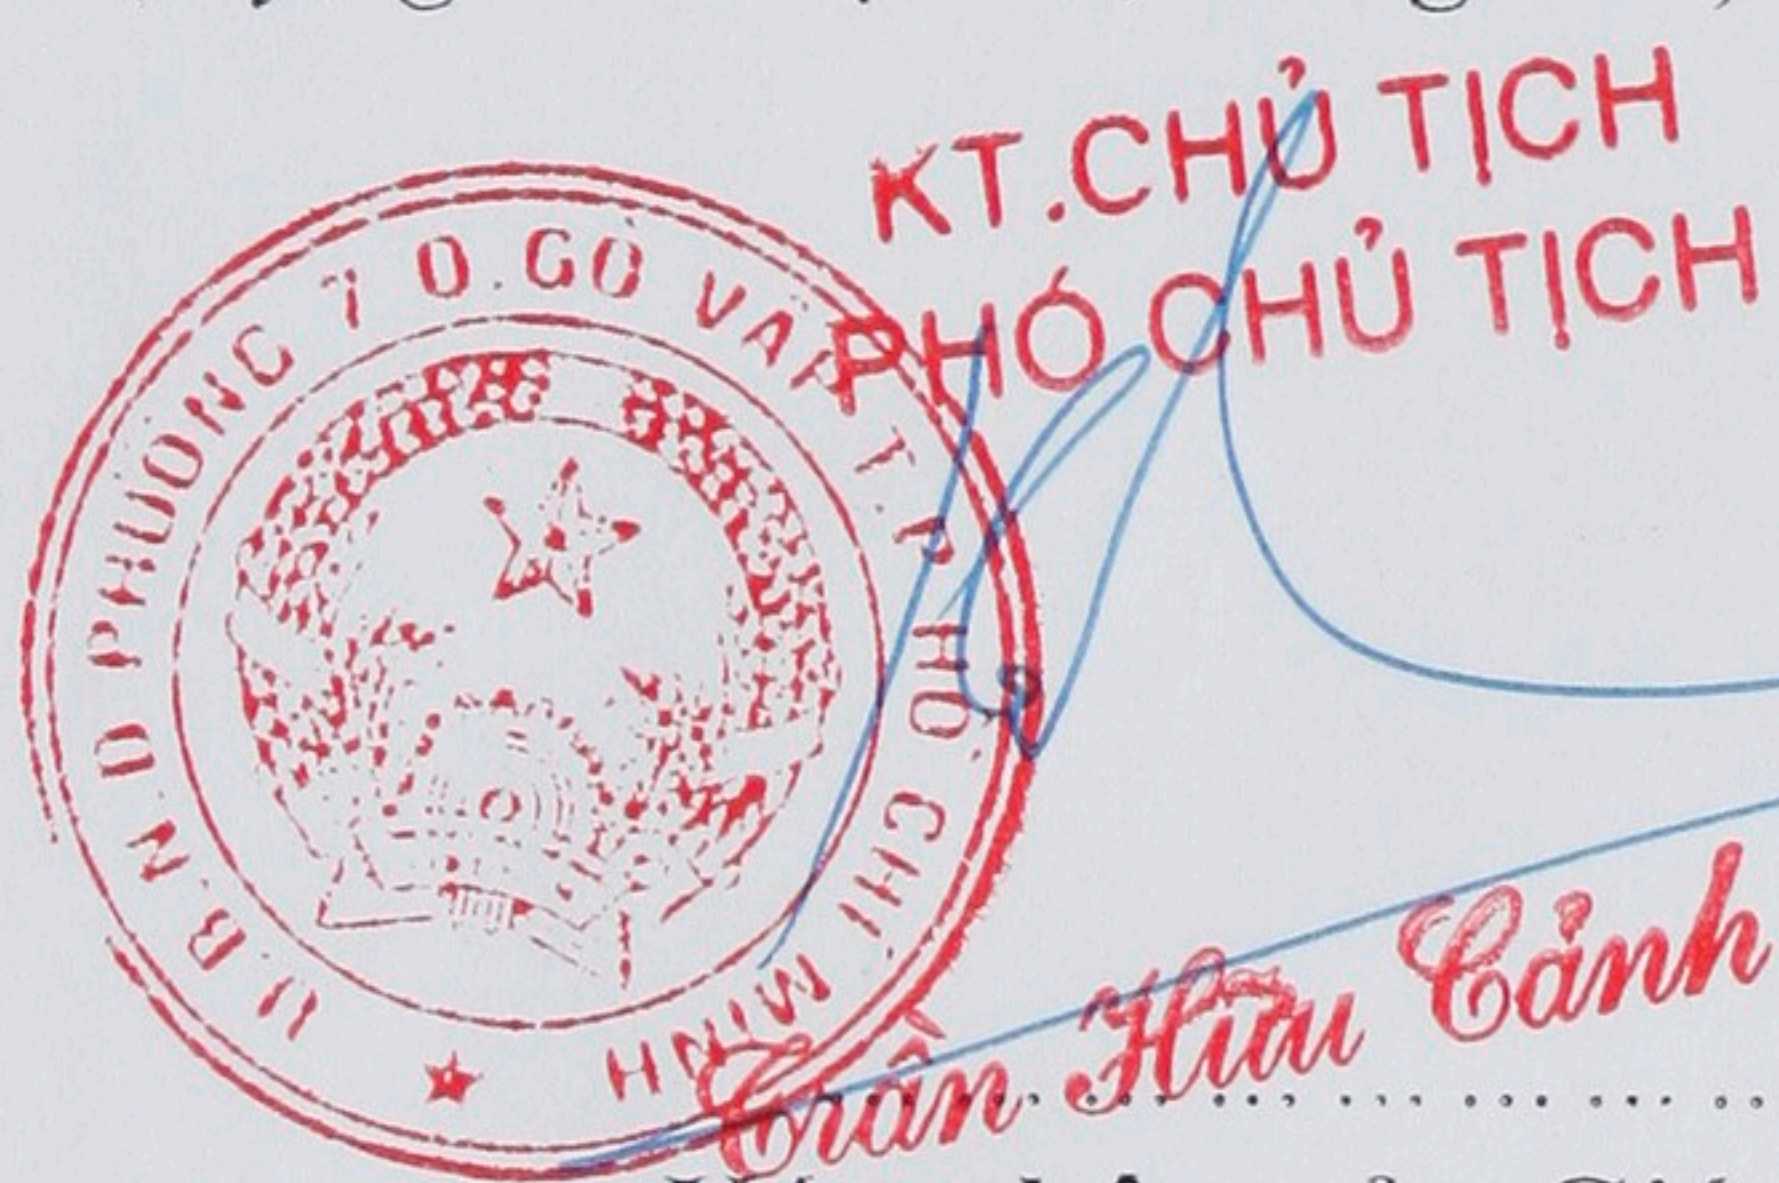 KT.CHỦ TỊCH
PHÓ CHỦ TỊCH
U B N D PHƯỜNG 7 Q.GÒ VẤP T.P HỒ CHÍ MINH
Trần Hữu Cảnh